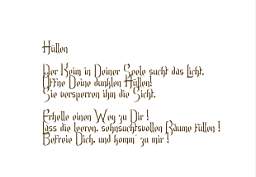 Hüllen
Der Keim in Deiner Seele sucht das Licht,
Öffne Deine dunklen Hüllen!
Sie versperren ihm die Sicht.
Erhelle einen Weg zu Dir !
Lass die leeren, sehnsuchtsvollen Räume füllen !
Befreie Dich, und komm' zu mir !